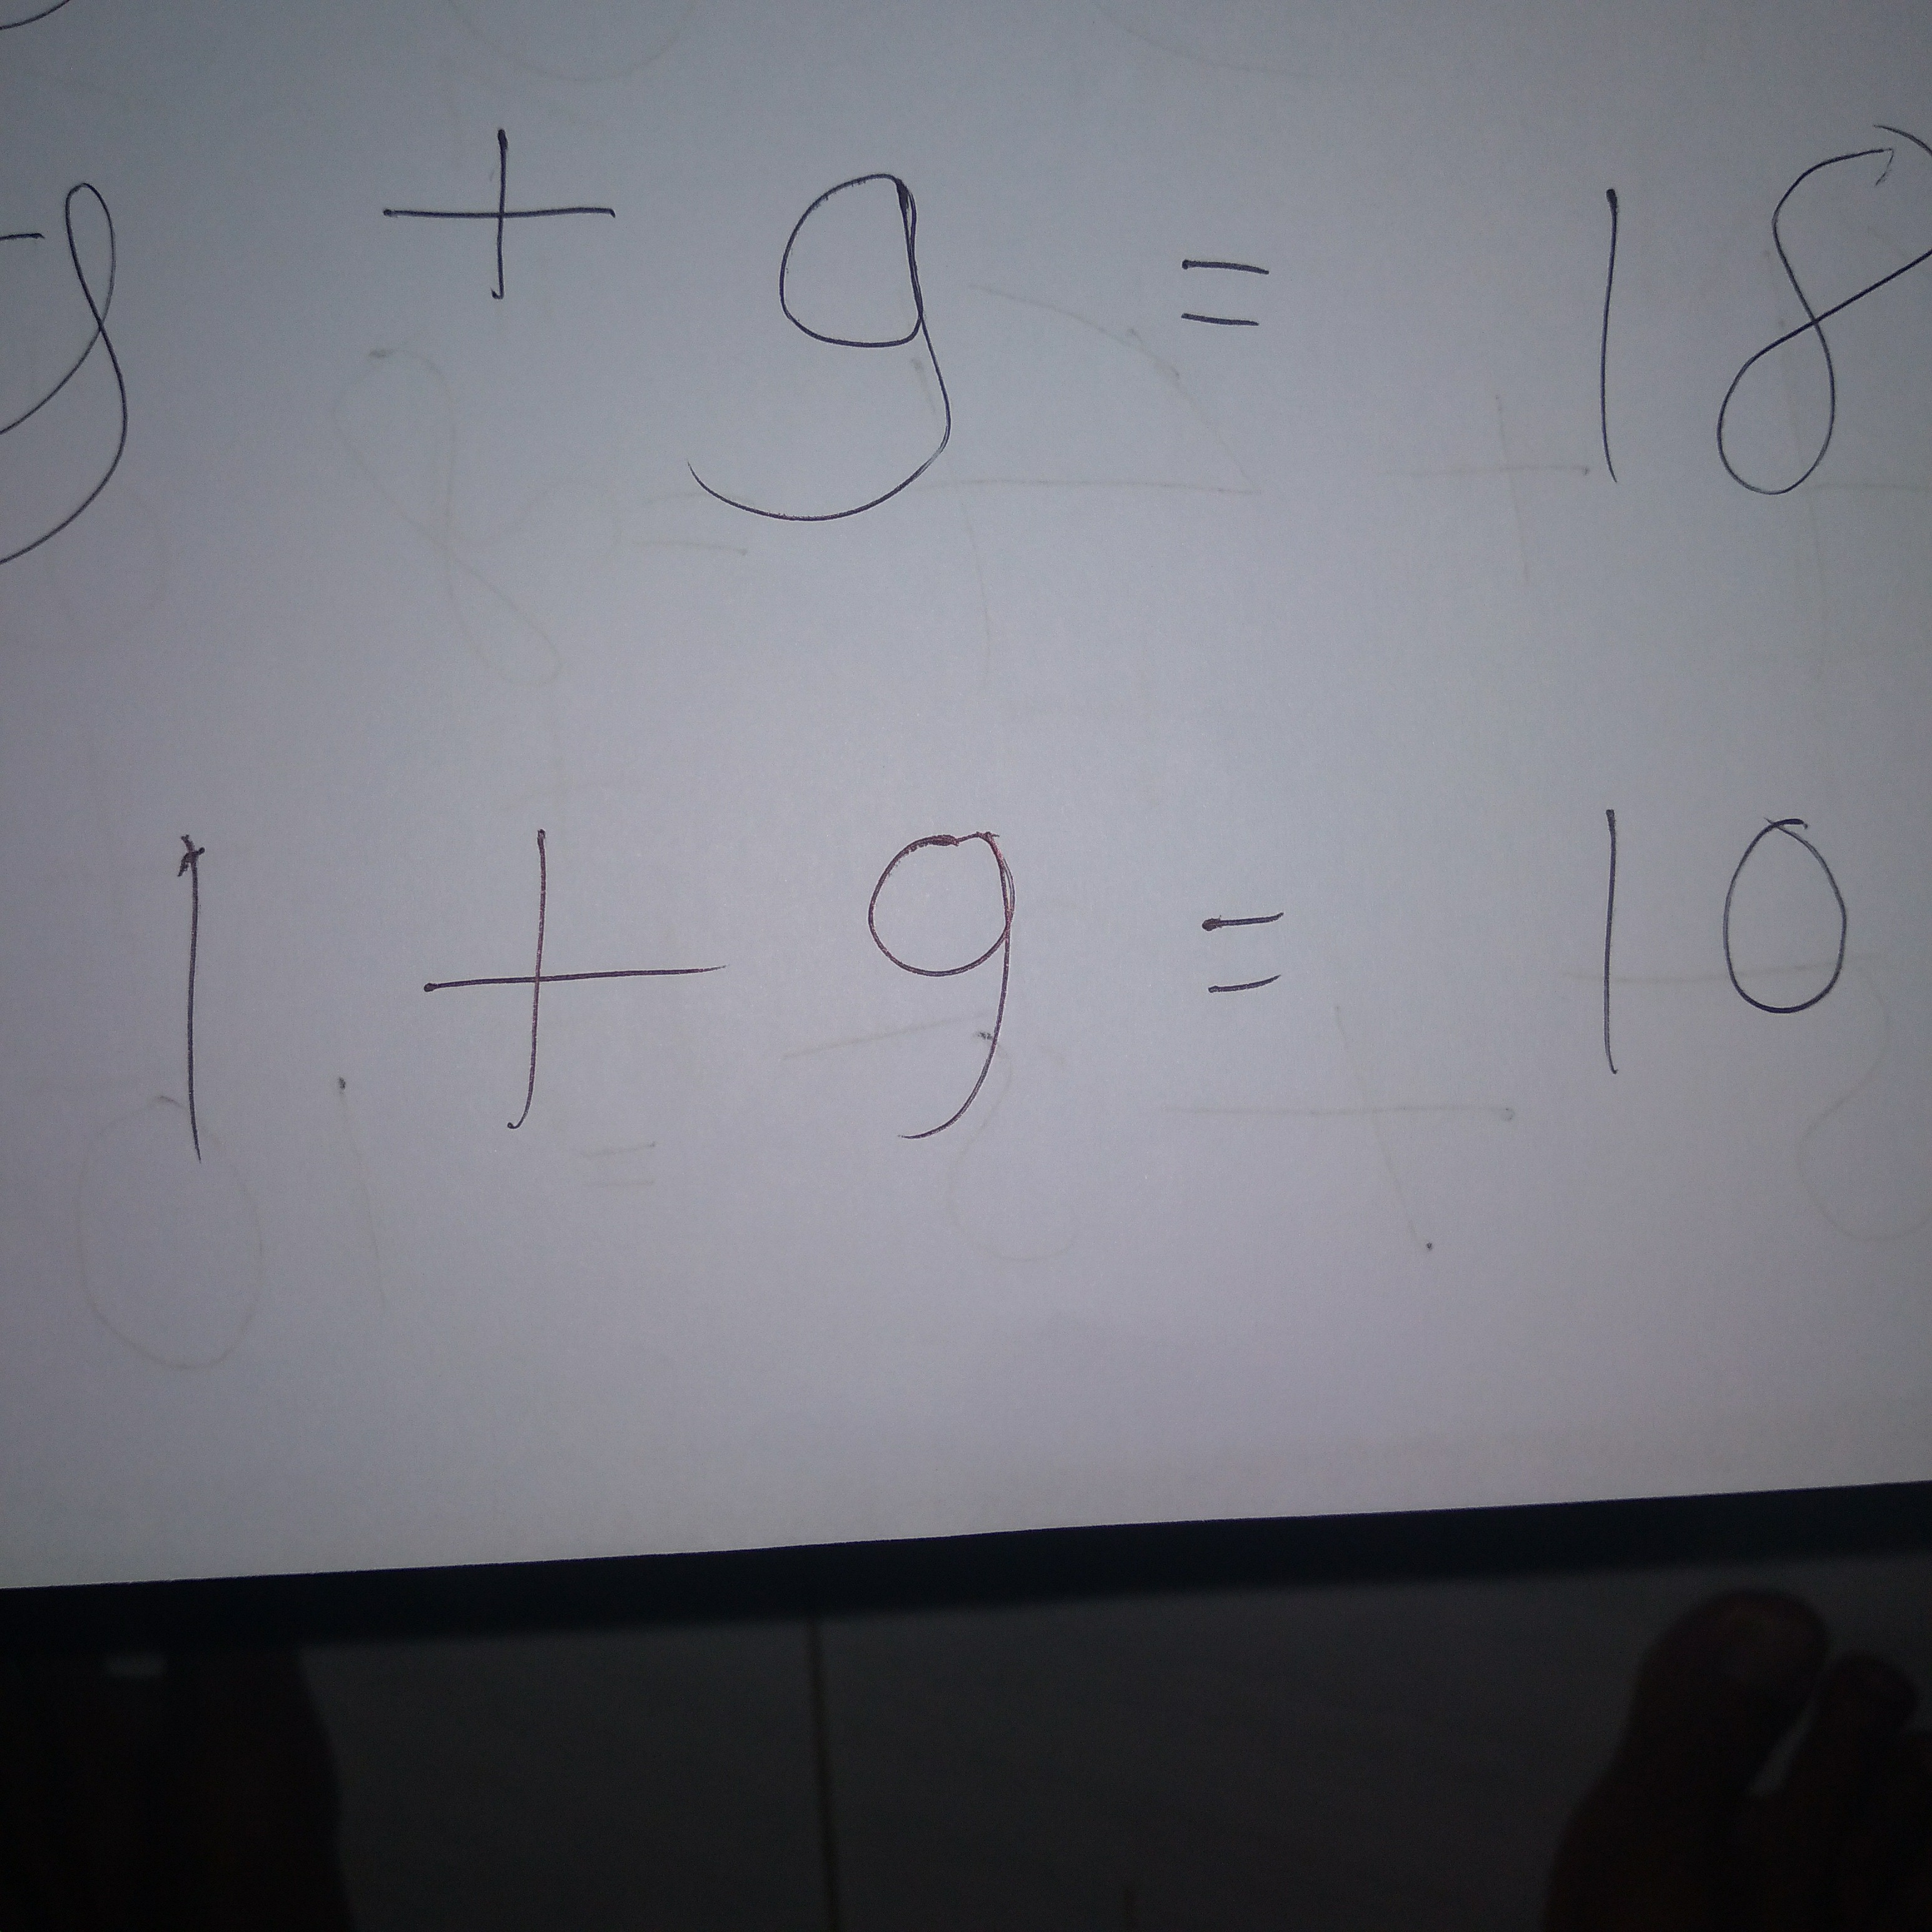 9 + 9 = 18
1 + 9 = 10